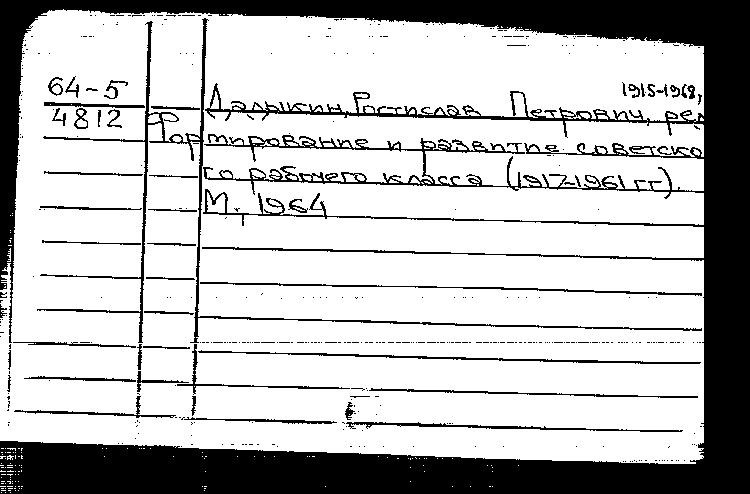 1915-1968,
64-5
Дадыкин, Ростислав Петрович, ред
4812
Формирование и развитие советско
го рабочего класса (1917-1961 гг).
М., 1964